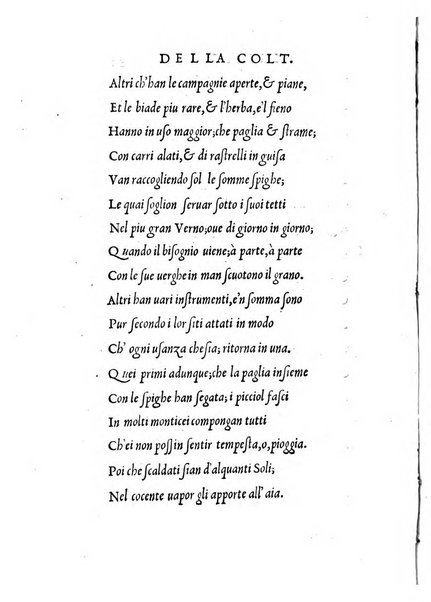 DELLA COLT.
Altri ch'han le campagnie aperte,& piane,
Et le biade piu rare,& l'herba,e'l fieno
Hanno in uſo maggior;che paglia & ſtrame;
Con carri alati,& di raſtrelli in guiſa
Van raccogliendo ſol le ſomme ſpighe;
Le quai ſoglion ſeruar ſotto i ſuoi tetti
Nel piu gran Verno;oue di giorno in giorno;
Quando il biſognio uiene;à parte,à parte
Con le ſue uerghe in man ſcuotono il grano.
Altri han uari inſtrumenti,e'n ſomma ſono
Pur ſecondo i lor ſiti attati in modo
Ch' ogni uſanza cheſia; ritorna in una.
Quei primi adunque;che la paglia inſieme
Con le ſpighe han ſegata; i picciol faſci
In molti monticei compongan tutti
Ch'ei non poſſin ſentir tempeſta,o,pioggia.
Poi che ſcaldati ſian d'alquanti Soli;
Nel cocente uapor gli apporte all'aia.